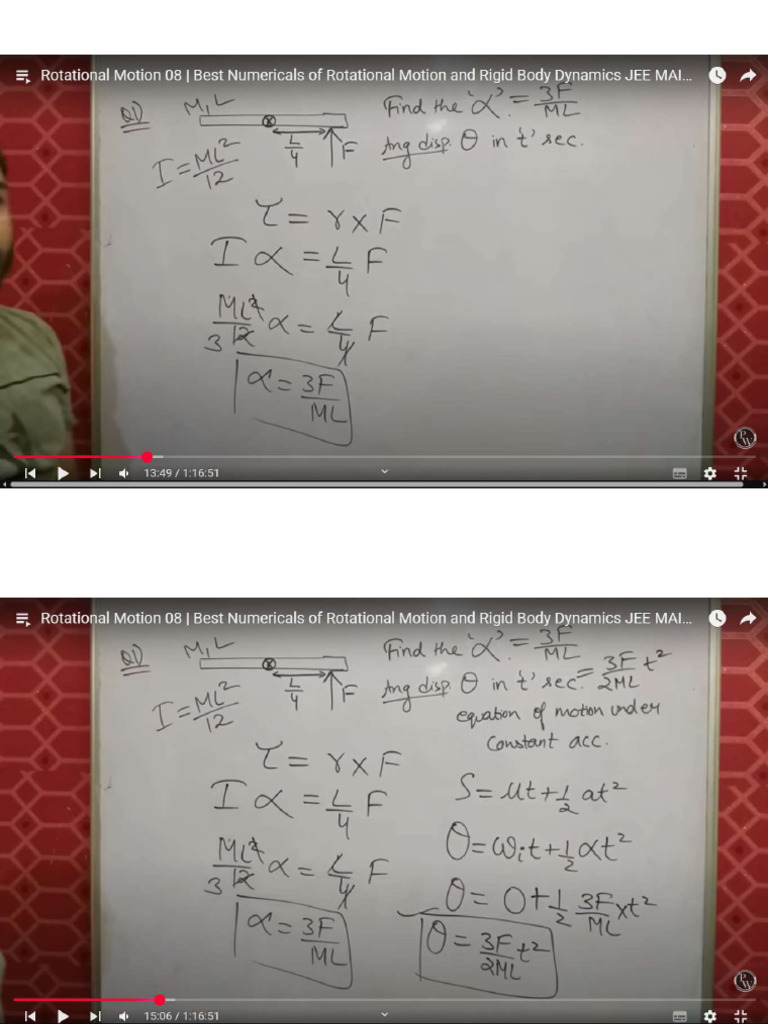 Rotational Motion 08 | Best Numericals of Rotational Motion and Rigid Body Dynamics JEE MAI...
Q1) M, L Find the 'α'. = 3F/ML
L/4 F Ang disp. θ in 't' sec.
I = ML²/12
τ = r × F
I α = L/4 F
ML²/12 3 α = L/4 F
α = 3F/ML
PW
13:49 / 1:16:51
Rotational Motion 08 | Best Numericals of Rotational Motion and Rigid Body Dynamics JEE MAI...
Q1) M, L Find the 'α'. = 3F/ML
L/4 F Ang disp. θ in 't' sec. = 3F/2ML t²
I = ML²/12
equation of motion under
Constant acc.
τ = r × F
S = ut + 1/2 at²
I α = L/4 F
θ = ωit + 1/2 αt²
ML²/12 3 α = L/4 F
θ = 0 + 1/2 3F/ML × t²
α = 3F/ML
θ = 3F/2ML t²
PW
15:06 / 1:16:51